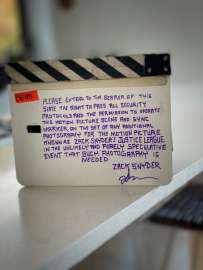 PLEASE EXTEND TO THE BEARER OF THIS
SLATE THE RIGHT TO PASS ALL SECURITY
PROTOCOLS AND THE PERMISSION TO OPERATE
THE MOTION PICTURE SCENE AND SYNC
MARKER, ON THE SET OF ANY ADDITIONAL
PHOTOGRAPHY FOR THE MOTION PICTURE
KNOWN AS ZACK SNYDER'S JUSTICE LEAGUE
IN THE UNLIKELY AND PURELY SPECULATIVE
EVENT THAT SUCH PHOTOGRAPHY IS
NEEDED
ZACK SNYDER